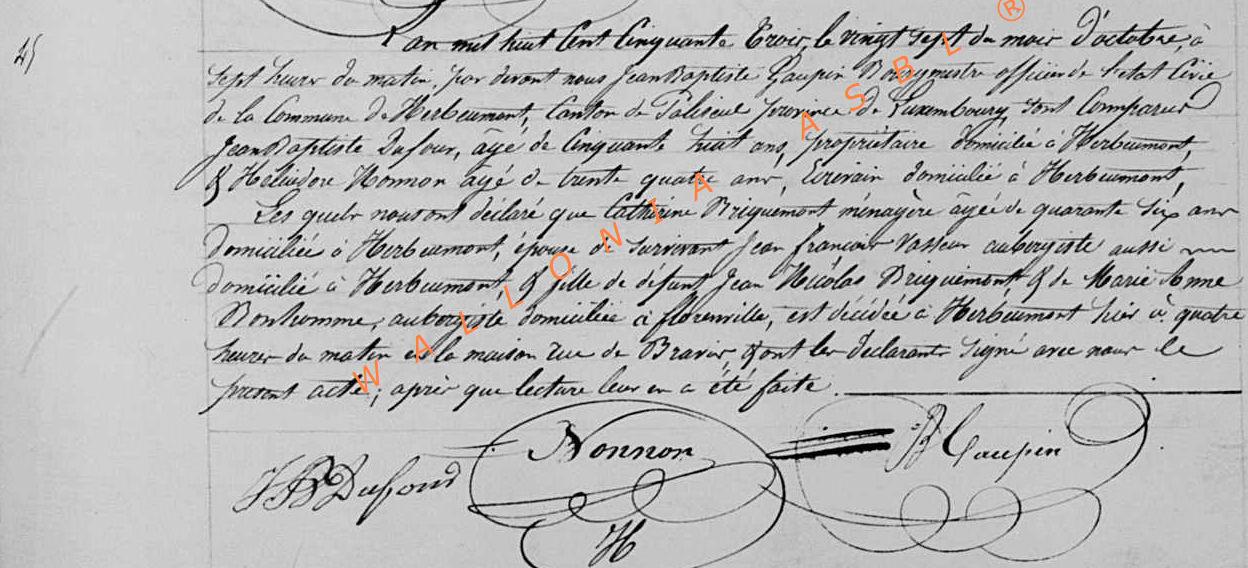 25
L'an mil huit Cent Cinquante Trois, le vingt sept du mois d'octobre, à
sept heures du matin, par devant nous Jean Baptiste Gaupin Bourgmestre officier de l'etat Civil
de la Commune de Herbeumont, Canton de Paliseul province de Luxembourg, sont Comparus
Jean Baptiste Dufour, âgé de Cinquante huit ans, propriétaire domicilié à Herbeumont,
& Héliodore Nonnon agé de trente quatre ans, Ecrivain domicilié à Herbeumont,
Les quels nous ont déclaré que Catherine Briquemont ménagère âgée de quarante six ans
domiciliée à Herbeumont, épouse de survivant Jean françois Vasseur aubergiste aussi
domicilié à Herbeumont, & fille de défunt Jean Nicolas Briquemont & de Marie Anne
Bonhomme, aubergiste domiciliée à florenville, est décédée à Herbeumont hier à quatre
heures du matin en la maison rue de & ont les déclarants signé avec nous le
present acte, après que lecture leur en a été faite.
JB Dufour
Nonnon
H
JB Gaupin
WALLONIA ASBL ®